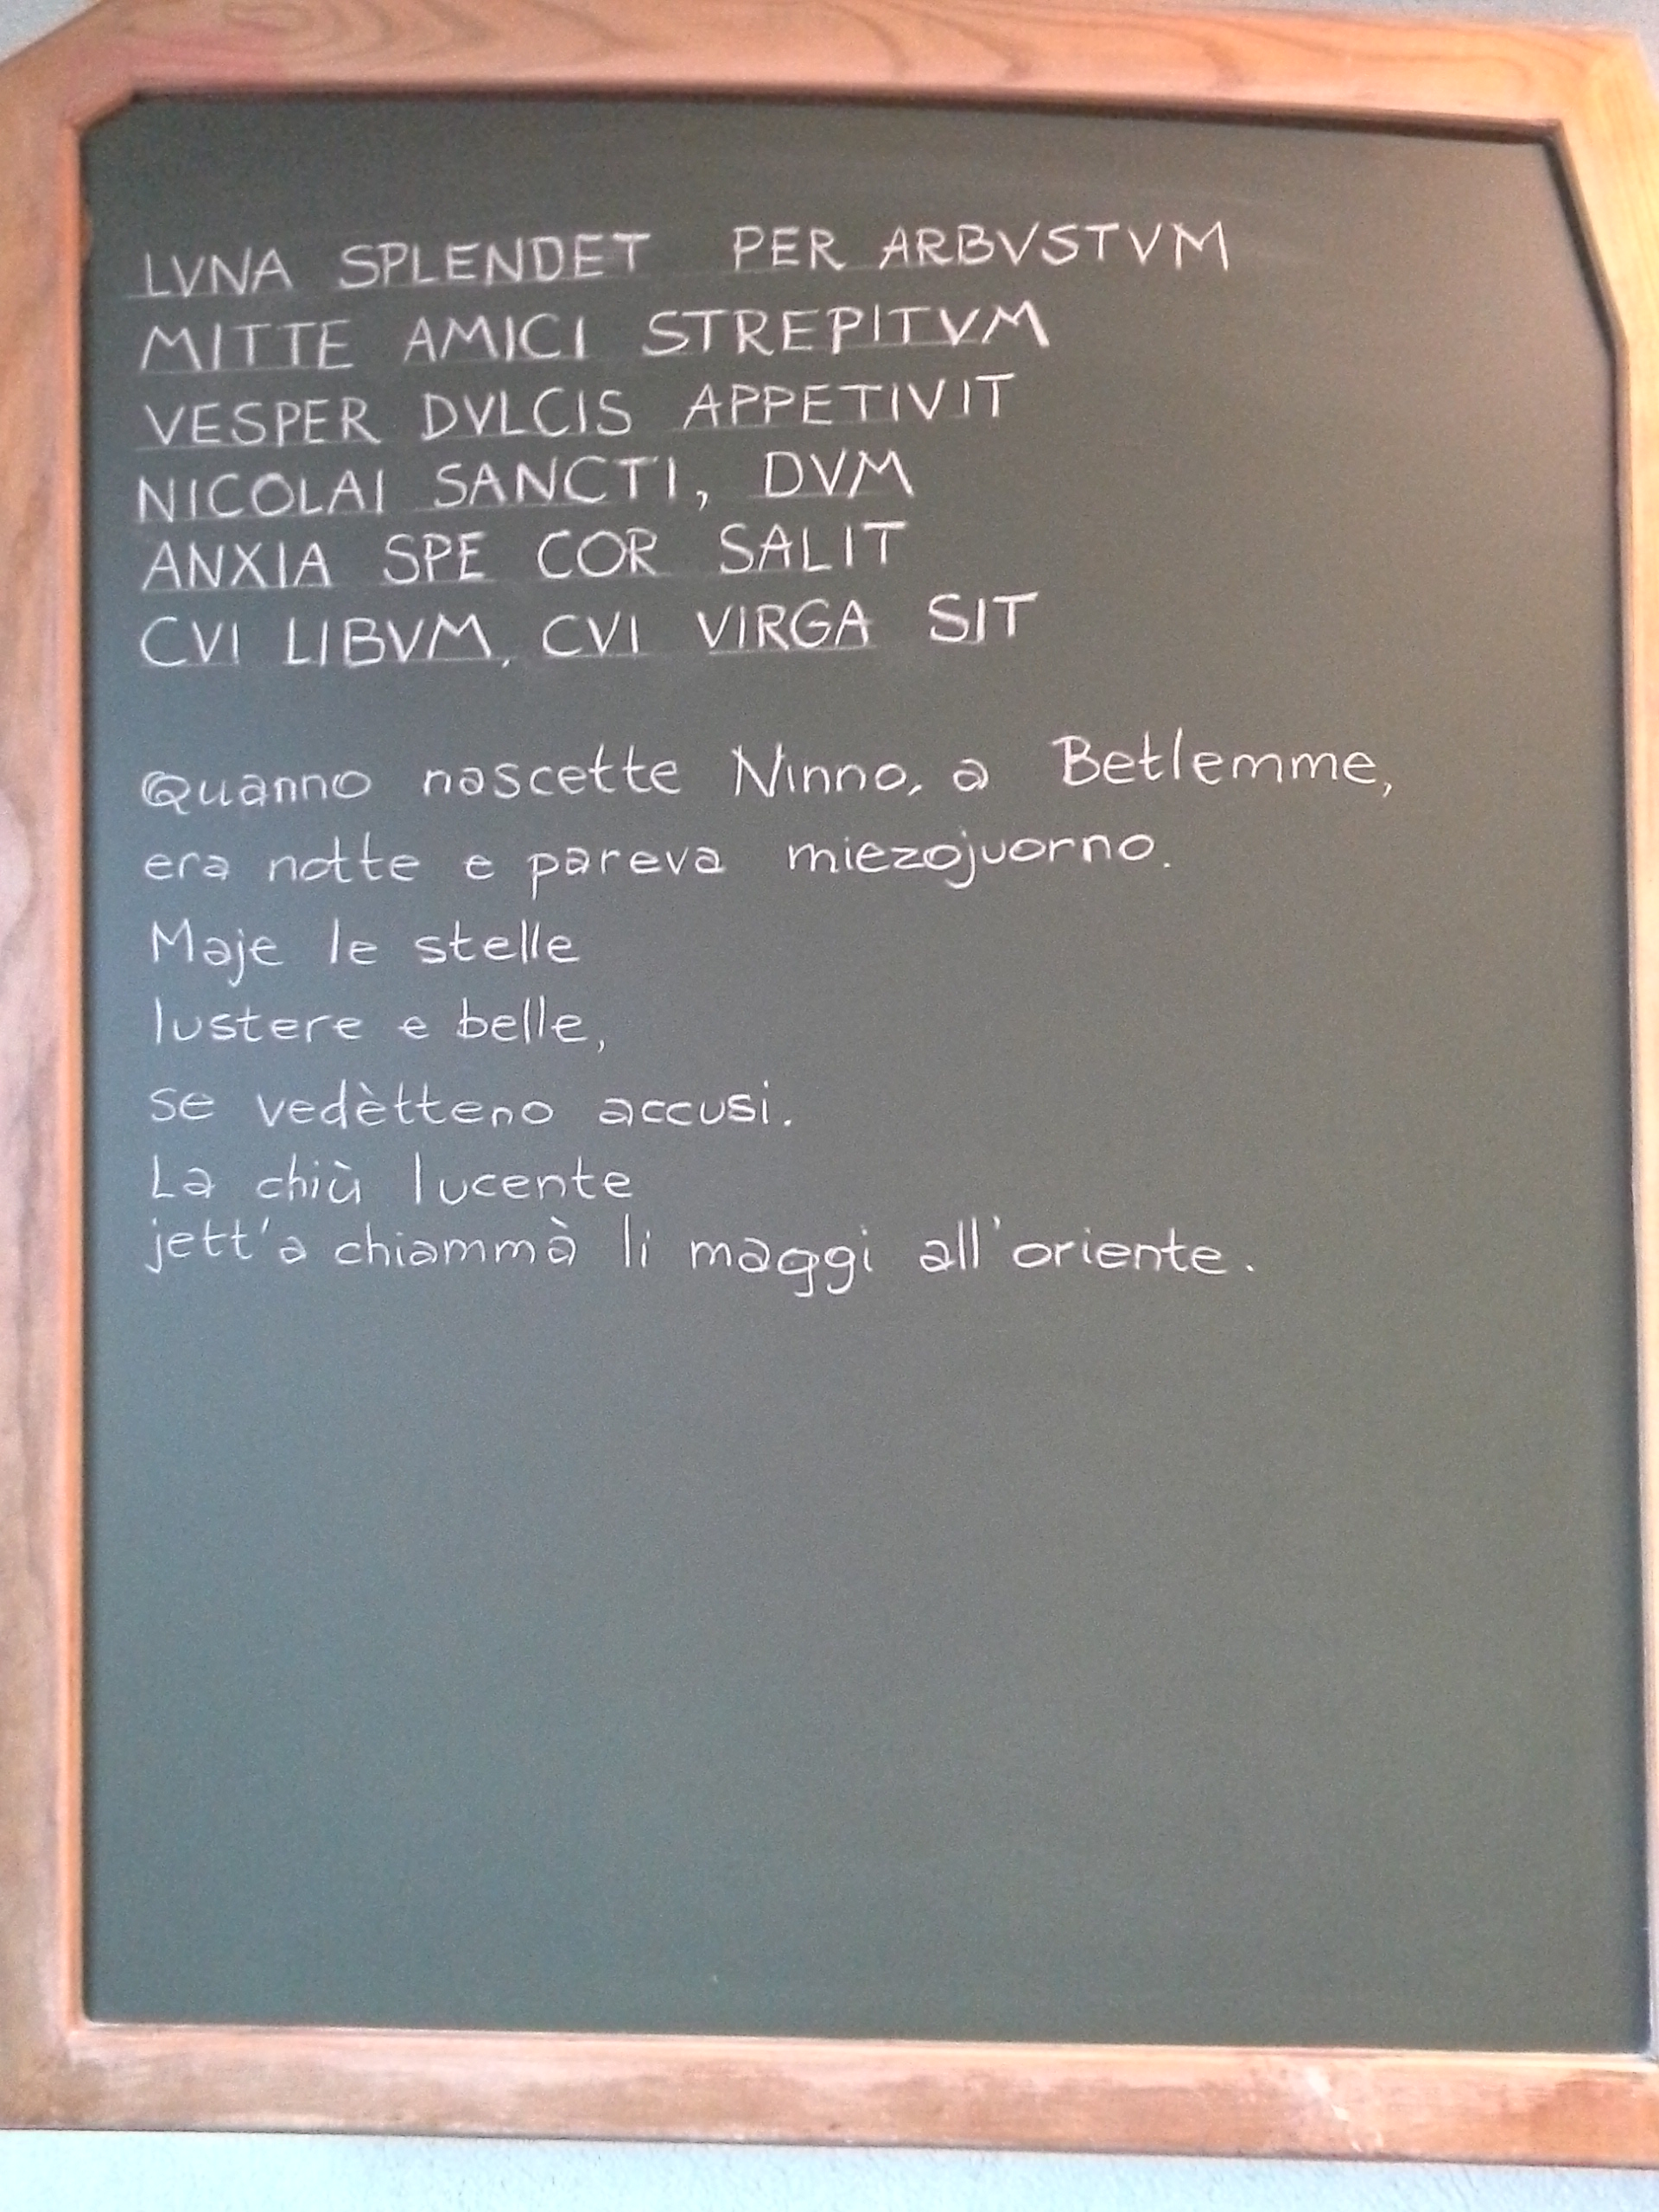 LVNA SPLENDET PER ARBVSTVM
MITTE AMICI STREPITVM
VESPER DVLCIS APPETIVIT
NICOLAI SANCTI, DVM
ANXIA SPE COR SALIT
CVI LIBVM, CVI VIRGA SIT
Quanno nascette Ninno, a Betlemme,
era notte e pareva miezojuorno.
Maje le stelle
lustere e belle,
se vedètteno accusi.
La chiù lucente
jett'a chiammà li maggi all'oriente.